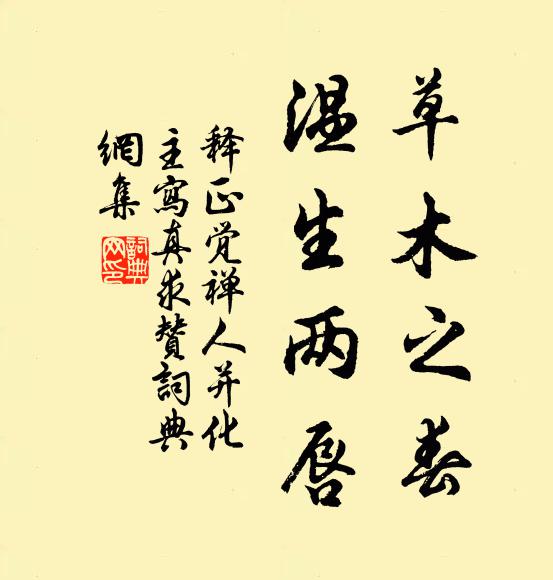 草木之春
温生两唇
释正觉禅人并化
主寫真求赞詞典
網集
詞典网印